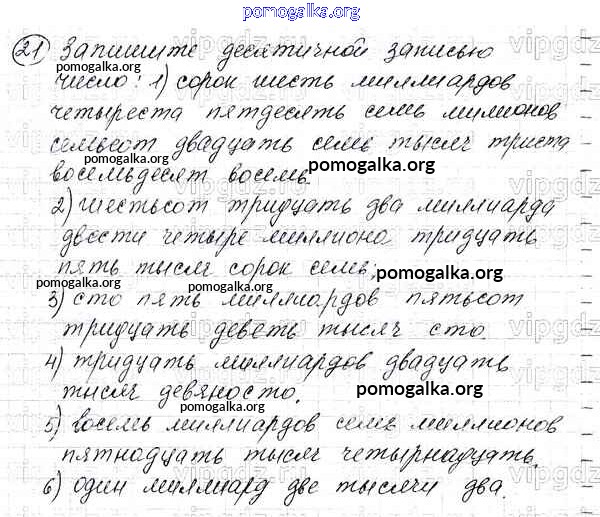 pomogalka.org
21 Запишите десятичной записью
число: 1) сорок шесть миллиардов
четыреста пятдесять семь милионов
семьсот двадцать семь тысяч триста
восемьдесят восемь.
pomogalka.org
2) шестьсот тридцать два миллиарда
двести четыре миллиона тридцать
пять тысяч сорок семь;
pomogalka.org
3) сто пять миллиардов пятьсот
тридцать деветь тысяч сто.
4) тридцать миллиардов двадцать
тысяч девяносто.
pomogalka.org
5) восемь миллиардов семь миллионов
пятнадцать тысяч четырнадцать.
6) один миллиард две тысячи два.